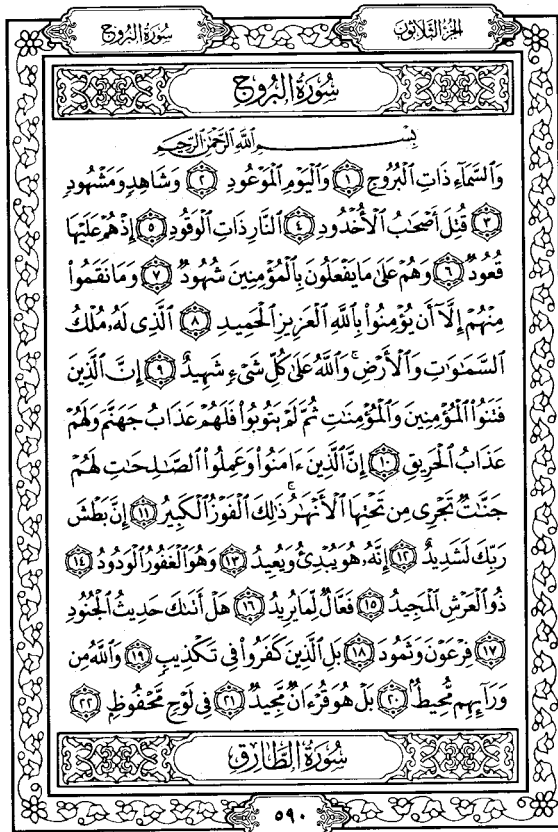 سُورَةُ البُرُوجِ
الجُزْءُ الثَّلَاثُونَ
سُورَةُ البُرُوجِ
بِسْمِ اللَّهِ الرَّحْمَٰنِ الرَّحِيمِ
وَالسَّمَاءِ ذَاتِ الْبُرُوجِ ١ وَالْيَوْمِ الْمَوْعُودِ ٢ وَشَاهِدٍ وَمَشْهُودٍ
٣ قُتِلَ أَصْحَٰبُ الْأُخْدُودِ ٤ النَّارِ ذَاتِ الْوَقُودِ ٥ إِذْ هُمْ عَلَيْهَا
قُعُودٌ ٦ وَهُمْ عَلَىٰ مَا يَفْعَلُونَ بِالْمُؤْمِنِينَ شُهُودٌ ٧ وَمَا نَقَمُوا۟
مِنْهُمْ إِلَّا أَن يُؤْمِنُوا۟ بِاللَّهِ الْعَزِيزِ الْحَمِيدِ ٨ الَّذِى لَهُۥ مُلْكُ
السَّمَٰوَٰتِ وَالْأَرْضِ ۚ وَاللَّهُ عَلَىٰ كُلِّ شَىْءٍ شَهِيدٌ ٩ إِنَّ الَّذِينَ
فَتَنُوا۟ الْمُؤْمِنِينَ وَالْمُؤْمِنَٰتِ ثُمَّ لَمْ يَتُوبُوا۟ فَلَهُمْ عَذَابُ جَهَنَّمَ وَلَهُمْ
عَذَابُ الْحَرِيقِ ١٠ إِنَّ الَّذِينَ ءَامَنُوا۟ وَعَمِلُوا۟ الصَّٰلِحَٰتِ لَهُمْ
جَنَّٰتٌ تَجْرِى مِن تَحْتِهَا الْأَنْهَٰرُ ۚ ذَٰلِكَ الْفَوْزُ الْكَبِيرُ ١١ إِنَّ بَطْشَ
رَبِّكَ لَشَدِيدٌ ١٢ إِنَّهُۥ هُوَ يُبْدِئُ وَيُعِيدُ ١٣ وَهُوَ الْغَفُورُ الْوَدُودُ ١٤
ذُو الْعَرْشِ الْمَجِيدُ ١٥ فَعَّالٌ لِّمَا يُرِيدُ ١٦ هَلْ أَتَىٰكَ حَدِيثُ الْجُنُودِ
١٧ فِرْعَوْنَ وَثَمُودَ ١٨ بَلِ الَّذِينَ كَفَرُوا۟ فِى تَكْذِيبٍ ١٩ وَاللَّهُ مِن
وَرَآئِهِم مُّحِيطٌ ٢٠ بَلْ هُوَ قُرْءَانٌ مَّجِيدٌ ٢١ فِى لَوْحٍ مَّحْفُوظٍ ٢٢
سُورَةُ الطَّارِقِ
٥٩٠